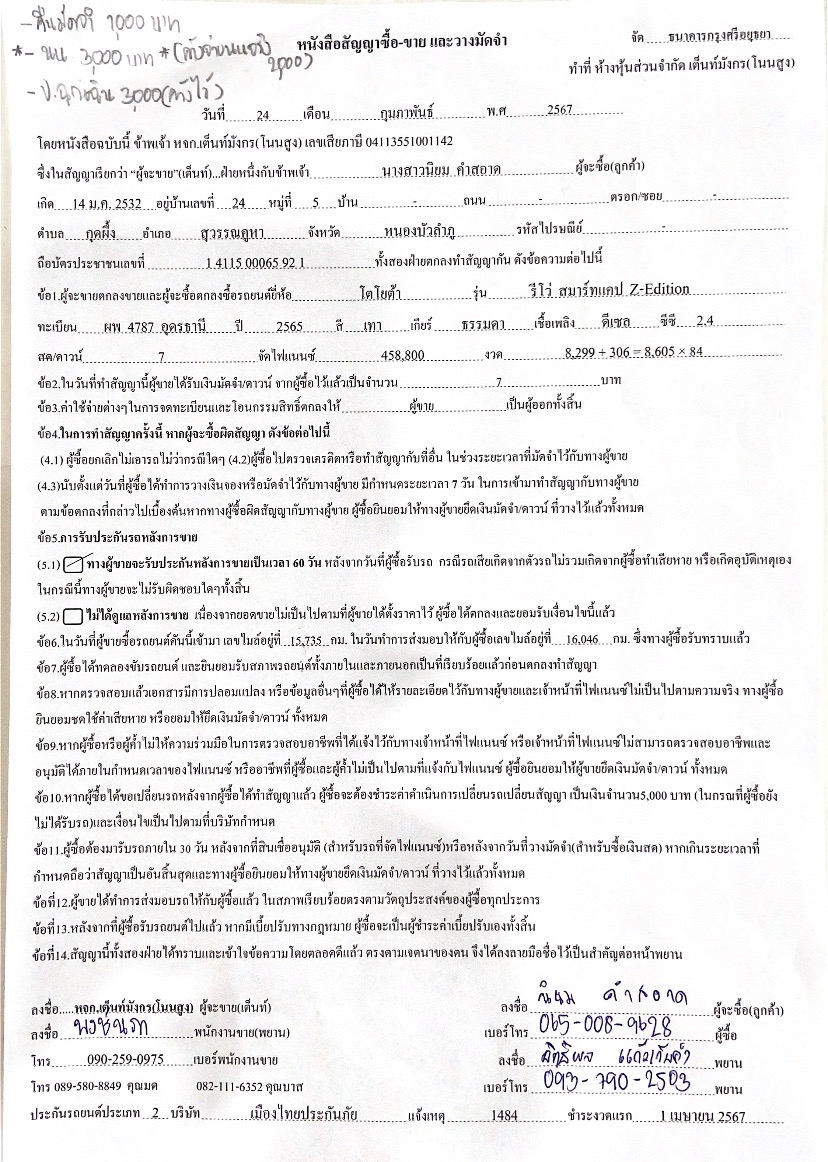 - คืนมัดจำ 1000 บาท
*- พน 3000 บาท * (ค้างจ่าย 2000)
- ป.ฉุกเฉิน 3,000 (ค้างไว้)
หนังสือสัญญาซื้อ-ขาย และวางมัดจำ
จัด ธนาคารกรุงศรีอยุธยา
ทำที่ ห้างหุ้นส่วนจำกัด เต็นท์มังกร(โนนสูง)
วันที่ 24 เดือน กุมภาพันธ์ พ.ศ 2567
โดยหนังสือฉบับนี้ ข้าพเจ้า หจก.เต็นท์มังกร(โนนสูง) เลขเสียภาษี 04113551001142
ซึ่งในสัญญาเรียกว่า "ผู้จะขาย"(เต็นท์)...ฝ่ายหนึ่งกับข้าพเจ้า นางสาวนิยม คำสอาด ผู้จะซื้อ(ลูกค้า)
เกิด 14 ม.ค. 2532 อยู่บ้านเลขที่ 24 หมู่ที่ 5 บ้าน - ถนน - ตรอก/ซอย -
ตำบล กุดผึ้ง อำเภอ สุวรรณคูหา จังหวัด หนองบัวลำภู รหัสไปรษณีย์ -
ถือบัตรประชาชนเลขที่ 1 4115 00065 92 1 ทั้งสองฝ่ายตกลงทำสัญญากัน ดังข้อความต่อไปนี้
ข้อ1.ผู้จะขายตกลงขายและผู้จะซื้อตกลงซื้อรถยนต์ยี่ห้อ โตโยต้า รุ่น รีโว่ สมาร์ทแคป Z-Edition
ทะเบียน ผพ 4787 อุดรธานี ปี 2565 สี เทา เกียร์ ธรรมดา เชื้อเพลิง ดีเซล ซีซี 2.4
สด/ดาวน์ 7 จัดไฟแนนซ์ 458,800 งวด 8,299 + 306 = 8,605 × 84
ข้อ2.ในวันที่ทำสัญญานี้ผู้ขายได้รับเงินมัดจำ/ดาวน์ จากผู้ซื้อไว้แล้วเป็นจำนวน 7 บาท
ข้อ3.ค่าใช้จ่ายต่างๆในการจดทะเบียนและโอนกรรมสิทธิ์ตกลงให้ ผู้ขาย เป็นผู้ออกทั้งสิ้น
ข้อ4.ในการทำสัญญาครั้งนี้ หากผู้จะซื้อผิดสัญญา ดังข้อต่อไปนี้
(4.1) ผู้ซื้อยกเลิกไม่เอารถไม่ว่ากรณีใดๆ (4.2)ผู้ซื้อไปตรวจเครดิตหรือทำสัญญากับที่อื่น ในช่วงระยะเวลาที่มัดจำไว้กับทางผู้ขาย
(4.3)นับตั้งแต่วันที่ผู้ซื้อได้ทำการวางเงินจองหรือมัดจำไว้กับทางผู้ขาย มีกำหนดระยะเวลา 7 วัน ในการเข้ามาทำสัญญากับทางผู้ขาย
ตามข้อตกลงที่กล่าวไปเบื้องต้นหากทางผู้ซื้อผิดสัญญากับทางผู้ขาย ผู้ซื้อยินยอมให้ทางผู้ขายยึดเงินมัดจำ/ดาวน์ ที่วางไว้แล้วทั้งหมด
ข้อ5.การรับประกันรถหลังการขาย
(5.1) ทางผู้ขายจะรับประกันหลังการขายเป็นเวลา 60 วัน หลังจากวันที่ผู้ซื้อรับรถ กรณีรถเสียเกิดจากตัวรถไม่รวมเกิดจากผู้ซื้อทำเสียหาย หรือเกิดอุบัติเหตุเอง
ในกรณีนี้ทางผู้ขายจะไม่รับผิดชอบใดๆทั้งสิ้น
(5.2) ไม่ได้ดูแลหลังการขาย เนื่องจากยอดขายไม่เป็นไปตามที่ผู้ขายได้ตั้งราคาไว้ ผู้ซื้อได้ตกลงและยอมรับเงื่อนไขนี้แล้ว
ข้อ6.ในวันที่ผู้ขายซื้อรถยนต์คันนี้เข้ามา เลขไมล์อยู่ที่ 15,735 กม. ในวันทำการส่งมอบให้กับผู้ซื้อเลขไมล์อยู่ที่ 16,046 กม. ซึ่งทางผู้ซื้อรับทราบแล้ว
ข้อ7.ผู้ซื้อได้ทดลองขับรถยนต์ และยินยอมรับสภาพรถยนต์ทั้งภายในและภายนอกเป็นที่เรียบร้อยแล้วก่อนตกลงทำสัญญา
ข้อ8.หากตรวจสอบแล้วเอกสารมีการปลอมแปลง หรือข้อมูลอื่นๆที่ผู้ซื้อได้ให้รายละเอียดไว้กับทางผู้ขายและเจ้าหน้าที่ไฟแนนซ์ไม่เป็นไปตามความจริง ทางผู้ซื้อ
ยินยอมชดใช้ค่าเสียหาย หรือยอมให้ยึดเงินมัดจำ/ดาวน์ ทั้งหมด
ข้อ9.หากผู้ซื้อหรือผู้ค้ำไม่ให้ความร่วมมือในการตรวจสอบอาชีพที่ได้แจ้งไว้กับทางเจ้าหน้าที่ไฟแนนซ์ หรือเจ้าหน้าที่ไฟแนนซ์ไม่สามารถตรวจสอบอาชีพและ
อนุมัติได้ภายในกำหนดเวลาของไฟแนนซ์ หรืออาชีพที่ผู้ซื้อและผู้ค้ำไม่เป็นไปตามที่แจ้งกับไฟแนนซ์ ผู้ซื้อยินยอมให้ผู้ขายยึดเงินมัดจำ/ดาวน์ ทั้งหมด
ข้อ10.หากผู้ซื้อได้ขอเปลี่ยนรถหลังจากผู้ซื้อได้ทำสัญญาแล้ว ผู้ซื้อจะต้องชำระค่าดำเนินการเปลี่ยนรถเปลี่ยนสัญญา เป็นเงินจำนวน5,000 บาท (ในกรณีที่ผู้ซื้อยัง
ไม่ได้รับรถ)และเงื่อนไขเป็นไปตามที่บริษัทกำหนด
ข้อ11.ผู้ซื้อต้องมารับรถภายใน 30 วัน หลังจากที่สินเชื่ออนุมัติ (สำหรับรถที่จัดไฟแนนซ์)หรือหลังจากวันที่วางมัดจำ(สำหรับซื้อเงินสด) หากเกินระยะเวลาที่
กำหนดถือว่าสัญญาเป็นอันสิ้นสุดและทางผู้ซื้อยินยอมให้ทางผู้ขายยึดเงินมัดจำ/ดาวน์ ที่วางไว้แล้วทั้งหมด
ข้อที่12.ผู้ขายได้ทำการส่งมอบรถให้กับผู้ซื้อแล้ว ในสภาพเรียบร้อยตรงตามวัตถุประสงค์ของผู้ซื้อทุกประการ
ข้อที่13.หลังจากที่ผู้ซื้อรับรถยนต์ไปแล้ว หากมีเบี้ยปรับทางกฎหมาย ผู้ซื้อจะเป็นผู้ชำระค่าเบี้ยปรับเองทั้งสิ้น
ข้อที่14.สัญญานี้ทั้งสองฝ่ายได้ทราบและเข้าใจข้อความโดยตลอดดีแล้ว ตรงตามเจตนาของตน จึงได้ลงลายมือชื่อไว้เป็นสำคัญต่อหน้าพยาน
ลงชื่อ.....หจก.เต็นท์มังกร(โนนสูง) ผู้จะขาย(เต็นท์) ลงชื่อ นิยม คำสอาด ผู้จะซื้อ(ลูกค้า)
ลงชื่อ พนักงานขาย(พยาน) เบอร์โทร 065-008-9628 ผู้ซื้อ
โทร 090-259-0975 เบอร์พนักงานขาย ลงชื่อ พยาน
โทร 089-580-8849 คุณมด 082-111-6352 คุณบาส เบอร์โทร 093-790-2503 พยาน
ประกันรถยนต์ประเภท 2 บริษัท เมืองไทยประกันภัย แจ้งเหตุ 1484 ชำระงวดแรก 1 เมษายน 2567